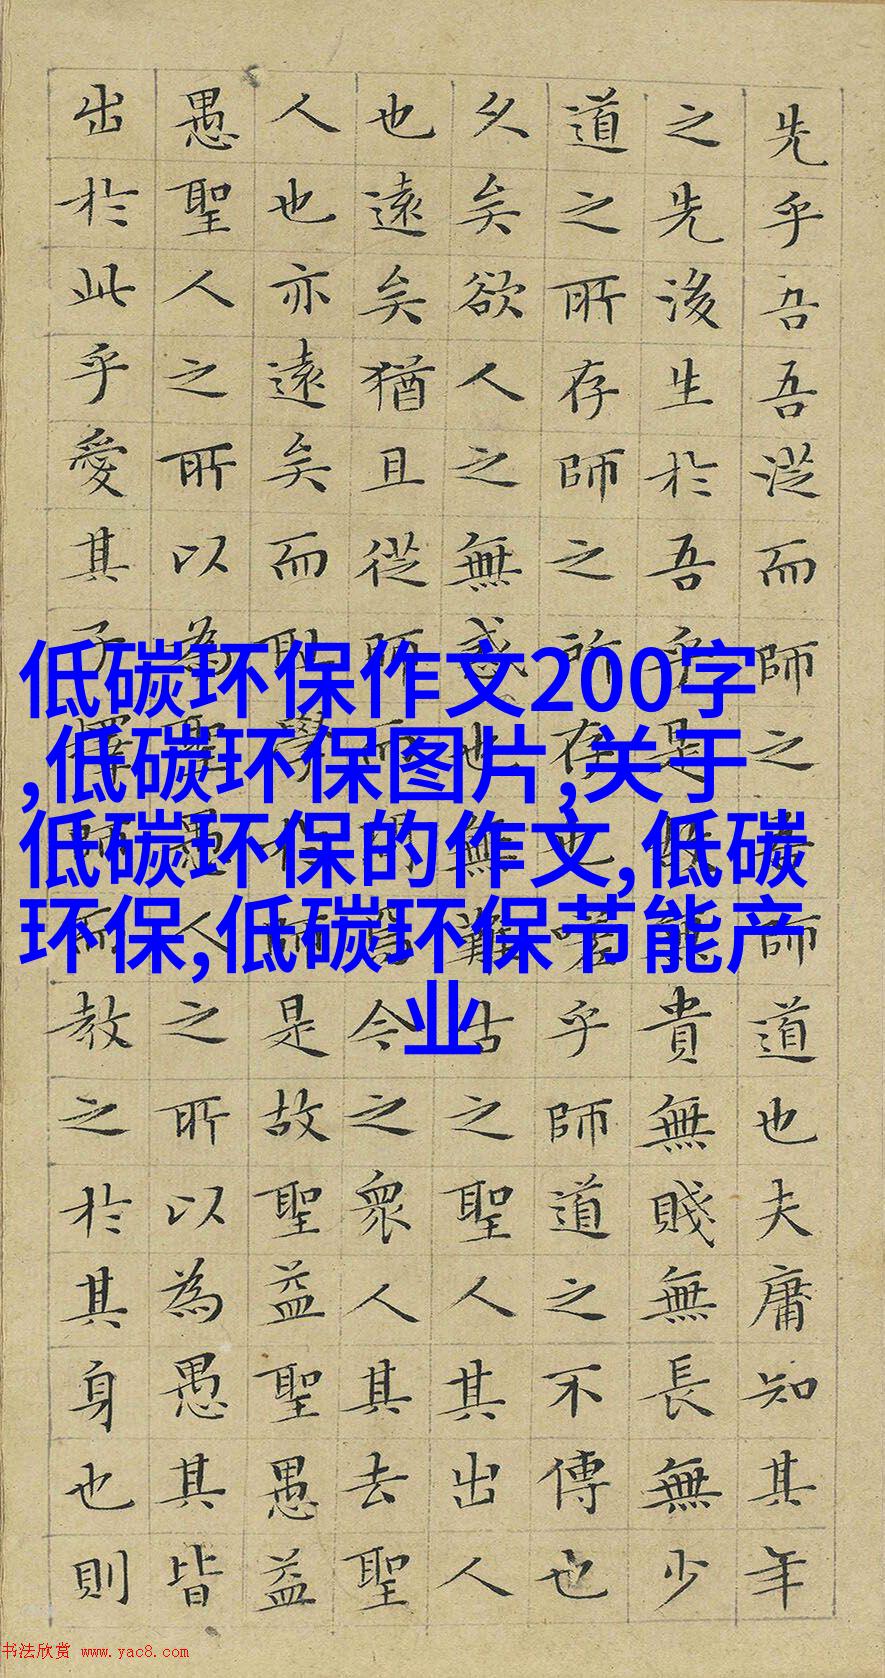 低碳环保作文200字
,低碳环保图片,关于
低碳环保的作文,低碳
环保,低碳环保节能产
业
先乎吾吾從而師之吾師道也夫庸知其年
之先後生於吾乎是故無貴無賤無長無少
道之所存師之所存也嗟乎師道之不傳也
久矣欲人之無惑也無難古之聖人其出人
也遠矣猶且從師而問焉今之衆人其去聖
人也亦遠矣而恥學於師是故聖益聖愚益
愚聖人之所以為聖愚人之所以為愚其皆
出於此乎愛其子擇師而教之於其身也則
书法欣赏 www.yac8.com